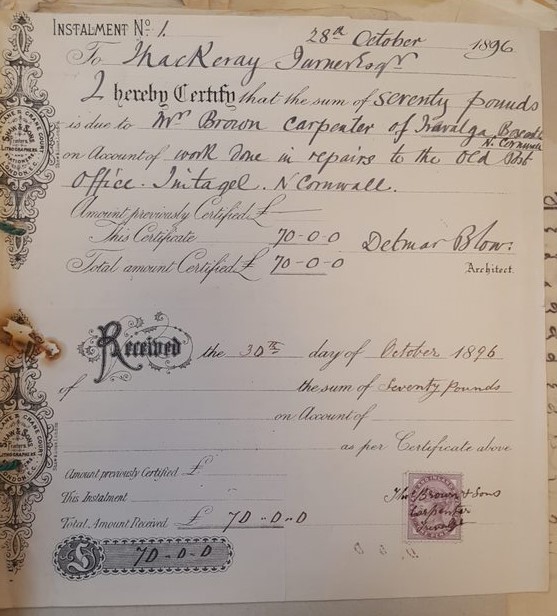 INSTALMENT No. 1. 28th October 1896
To Thackeray Turner Esqr
I hereby Certify that the sum of seventy pounds
is due to Mr Brown carpenter of Travalga Boscastle N. Cornwall
on Account of work done in repairs to the old Post
Office. Tintagel. N Cornwall.
Amount previously Certified £ —
This Certificate 70-0-0 Detmar Blow.
Total amount Certified £ 70-0-0 Architect.
Received the 30th day of October 1896
of the sum of Seventy Pounds
on Account of
as per Certificate above
Amount previously Certified £
This Instalment Brown & Sons
Total Amount Received £ 70-0-0 Carpenter
£ 70-0-0
SHAW & SONS
LITHOGRAPHERS
CRANE COURT
LONDON E.C.